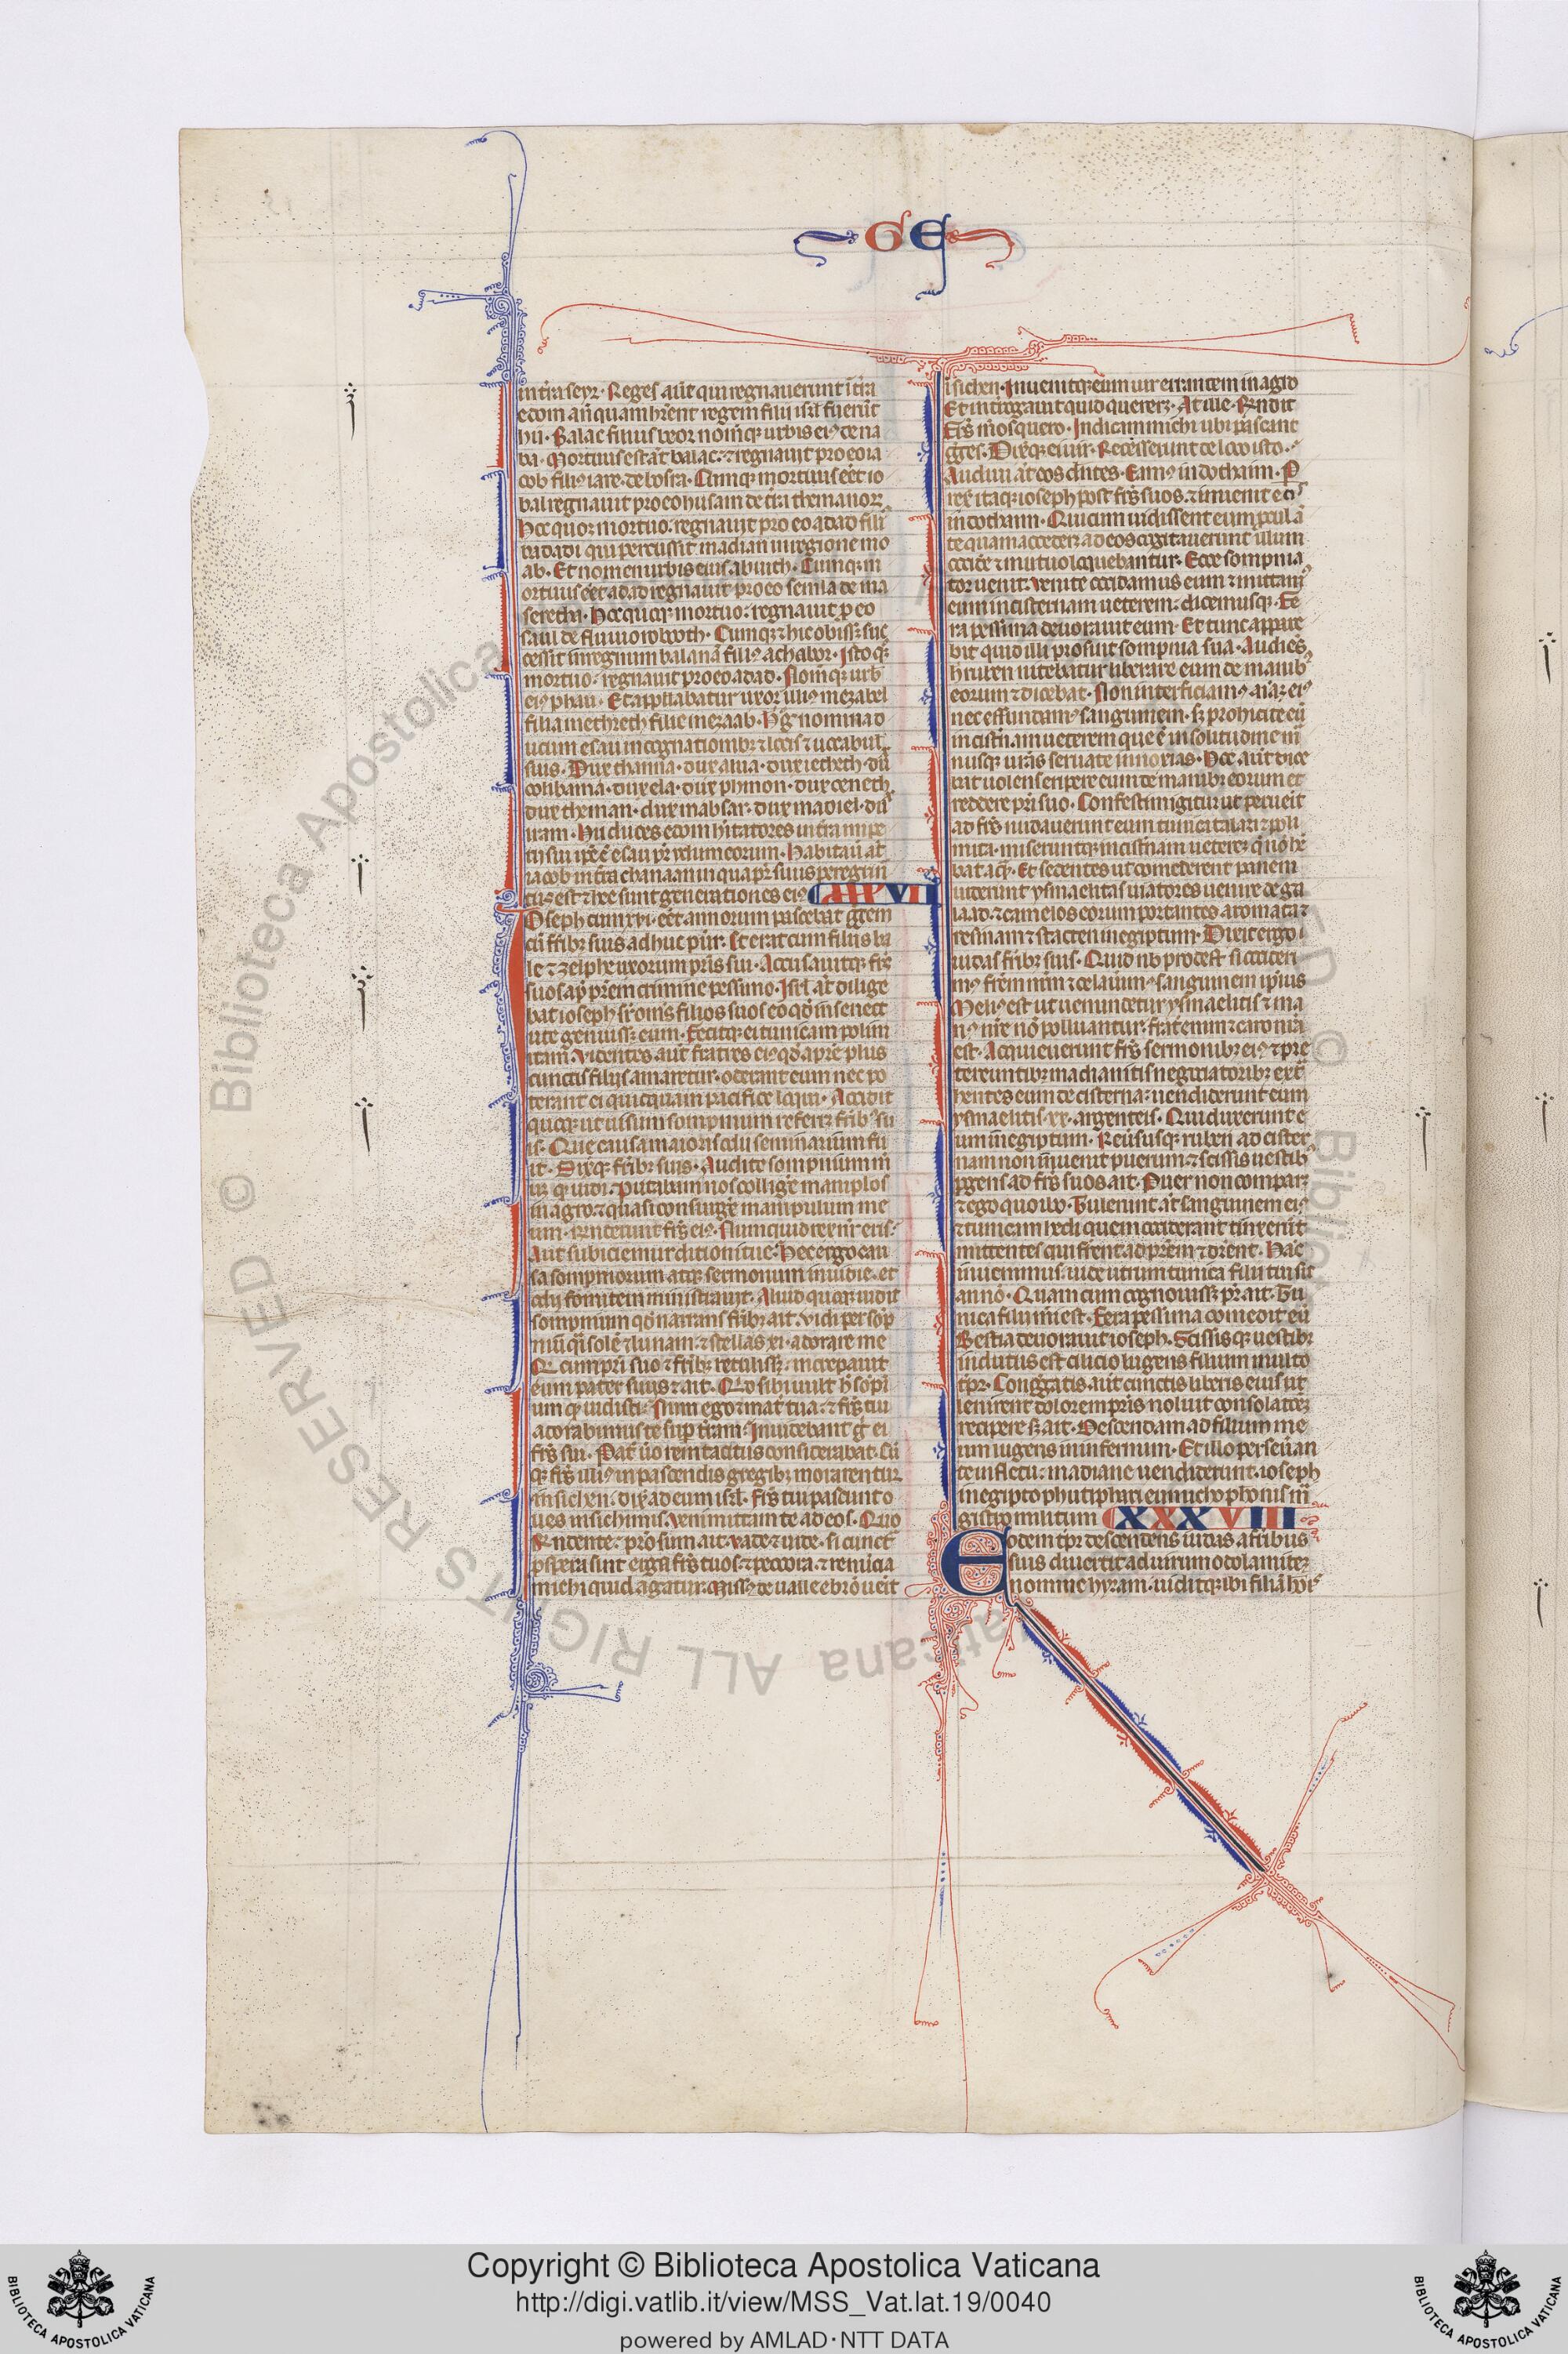 GE
in t̄ra seyr. Reges aūt qui regnauerunt ī t̄ra
edom añ quam hr̄ent regem filii isr̄l fuerūt
hii. Balac filius beor nomq; urbis eiꝰ dena
ba. Mortuus est āt balac. ⁊ regnauit pro eo ia
cob filiꝰ iare. de bosra. Cumq; mortuus eēt io
bab regnauit pro eo husam de t̄ra themanorꝝ
Hoc quoꝫ mortuo. regnauit pro eo adad filiꝰ
badadi qui percussit madian in regione mo
ab. Et nomen urbis eius abiuith. Cumq; m
ortuus eēt adad regnauit pro eo semla de ma
seretha. Hoc quoq; mortuo: regnauit p̄ eo
saul de fluuio roboth. Cumq; ⁊ hic obiissꝫ suc
cessit in regnum balanā filiꝰ achabor. Isto q;
mortuo. regnauit pro eo adad. Nomq; urbꝭ
eiꝰ phau. Et appllabatur uxor illiꝰ mezabel
filia methreth filie mezaab. Hꝰ g̊ nomina d
ucum esau in cognationibꝫ ⁊ locis ⁊ uocabulꝭ
suis. Dux thanna. dux alua. dux ietheth. dux
colibama. dux ela. dux phinon. dux ceneth
dux theman. dux mabsar. dux madiel. dux
uam. Hii duces edom hītatores in t̄ra impe
rii sui ip̄e ē esau pr̄ ydumeorum. Habitauī āt
iacob in t̄ra chanaan in qua pr̄ suus peregrin
tuꝰ est ⁊ hee sunt generationes eiꝰ
Ioseph cum xvi. eēt annorum pascebat g̊gem
cū fr̄ibꝫ suis adhuc puer. Et erat cum filiis ba
le ⁊ zelphe uxorum pr̄is sui. Accusauitq; fr̄s
suos ap̄ pr̄em crimine pessimo. Isr̄l āt dilige
bat ioseph sr̄ oms̄ filios suos eo qd̄ in senect
ute genuissꝫ eum. Fecitq; ei tunicam polim
itam. Videntes aūt fratres eiꝰ qd̄ a pr̄e plus
cunctis filiis amaretur. oderant eum nec po
terant ei quicquam pacifice loqui. Accidit
quoꝫ ut uisum sompnium referꝫ fr̄ibꝫ su
is. Que causa maioris odii seminarium fu
it. Dixitq; fr̄ibꝫ suis. Audite sompnium m̄
um qd̄ uidi. Putabam nos collige manip̄los
in agro. ⁊ quasi consurgē manipulum me
um. Rn̄derunt fr̄s eiꝰ. Numquid rex nr̄ eris.
Aut subiciemur ditioni tue. Hec ergo cau
sa sompniorum atq; sermonum inuidie. et
odii fomitem ministrauit. Aliud quoꝫ uidit
sompnium qd̄ narrans fr̄ibꝫ ait. Vidi per sōp
niū qͣsi solē ⁊ lunam. ⁊ stellas xi. adorare me
Qd̄ cum pr̄i suo ⁊ fr̄ibꝫ retulissꝫ. increpauit
eum pater suus ⁊ ait. Qd̄ sibi uult h̄ sōpni
um qd̄ uidisti. Num ego ⁊ mat̄ tua. ⁊ fr̄s tui
adorabimus te sup̄ t̄ram. Inuidebant g̊ ei
fr̄s sui. Pat̄ uō rem tacitus considerabat. Cū
q; fr̄s illiꝰ in pascendis gregibꝫ morarentur
in sichen. dix̄ ad eum isr̄l. Fr̄s tui pascunt o
ues in sichimis. Veni mittam te ad eos. Quo
Rn̄dente. pr̄o sum ait. Vade ⁊ uide. si cunctꝭ
prospera sint erga fr̄s tuos. ⁊ peccora. ⁊ renūcia
michi quid agatur. Missꝰ de ualle ebrō ueīt
ī sichen. Inuenitq; eum uir errantem in agro
Et int̄rogauit quid quererꝫ. At ille Rn̄dit
Fr̄s m̄os quero. Indica michi ubi pascant
g̊ges. Dixitq; ei uir. Recesserunt de loco isto.
Audiui āt eos dn̄tes. Eamꝰ in dothaim. P
rexit itaq; ioseph post fr̄s suos. ⁊ inuenit eos
in dothaim. Qui cum uidissent eum procul ā
te quam accederꝫ ad eos cogitauerunt illum
occidē ⁊ mutuo loquebantur. Ecce sompnia
tor uenit. Venite occidamus eum ⁊ mittamꝰ
eum in cisternam ueterem. dicemusq;. Fe
ra pessima deuorauit eum. Et tunc appare
bit quid illi prosint sompnia sua. Audiens
h̄ ruben nitebatur liberare eum de manibꝫ
eorum ⁊ dicebat. Non interficiamꝰ aīaꝫ eiꝰ
nec effundamꝰ sanguinem. sꝫ prohicite eū
in cistn̄am ueterem que ē in solitudine m̄
nusq; uras̄ seruate innoxias. Hoc aūt dice
bat uolens eripere eum de manibꝫ eorum et
reddere pr̄i suo. Confestim igitur ut peruēit
ad fr̄s nudauerunt eum tunica talari ⁊ poli
mita. miseruntq; in cistn̄am ueterꝫ q̄ nō hē
bat aq̄. Et sedentes ut comederent panem
uiderunt ysmaelitas uiatores uenire de ga
laad. ⁊ camelos eorum portantes aromata ⁊
resinam ⁊ stacten in egiptum. Dixit ergo
iudas fr̄ibꝫ suis. Quid nob̄ prodest si occideri
mꝰ fr̄em nr̄m ⁊ celauimꝰ sanguinem ipsius
Meliꝰ est ut uenundetur ysmaelitis ⁊ ma
nꝰ nr̄e nō polluantur. frater enim ⁊ caro nr̄a
est. Acquieuerunt fr̄s sermonibꝫ eiꝰ ⁊ pre
tereuntibꝫ madianitis negociatoribꝫ extͣ
hentes eum de cisterna. uendiderunt eum
ysmaelitis. xx. argenteis. Qui duxerunt e
um in egiptum. Reūsusq; ruben ad cister
nam non inuenit puerum. ⁊ scissis uestibꝫ
pgens ad fr̄s suos ait. Puer non comparꝫ
⁊ ego quo ibo. Tulerunt āt sanguinem eiꝰ
⁊ tunicam hedi quem occiderant tinxerūt
mittentes qui frēnt ad pr̄em ⁊ dr̄ent. Hāc
inuenimus. uide utrum tunica filii tui sit
an nō. Quam cum cognouissꝫ pr̄ ait. Tu
nica filii m̄i est. Fera pessima comedit eū
Bestia deuorauit ioseph. Scissisq; uestibꝫ
indutus est cilicio lugens filium multo
tp̄r. Congr̄atis. aūt cunctis liberis eius ut
lenirent dolorem pr̄is noluit consolatōeꝫ
recipere sꝫ ait. Descendam ad filium me
um lugens in infernum. Et illo perseūan
te in fletu. madiane uendiderunt. ioseph
in egipto phutiphari eunucho pharonis m̄
gistro militum XXXVIII
Eodem tp̄r descendens iudas a fr̄ibus
suis diuertit ad uirum odolamiteꝫ
nomine hyram. uiditq; ibi filiā hoīs
Copyright © Biblioteca Apostolica Vaticana
http://digi.vatlib.it/view/MSS_Vat.lat.19/0040
powered by AMLAD·NTT DATA
BIBLIOTECA APOSTOLICA VATICANA
BIBLIOTECA APOSTOLICA VATICANA
© Biblioteca Apostolica Vaticana ALL RIGHTS RESERVED